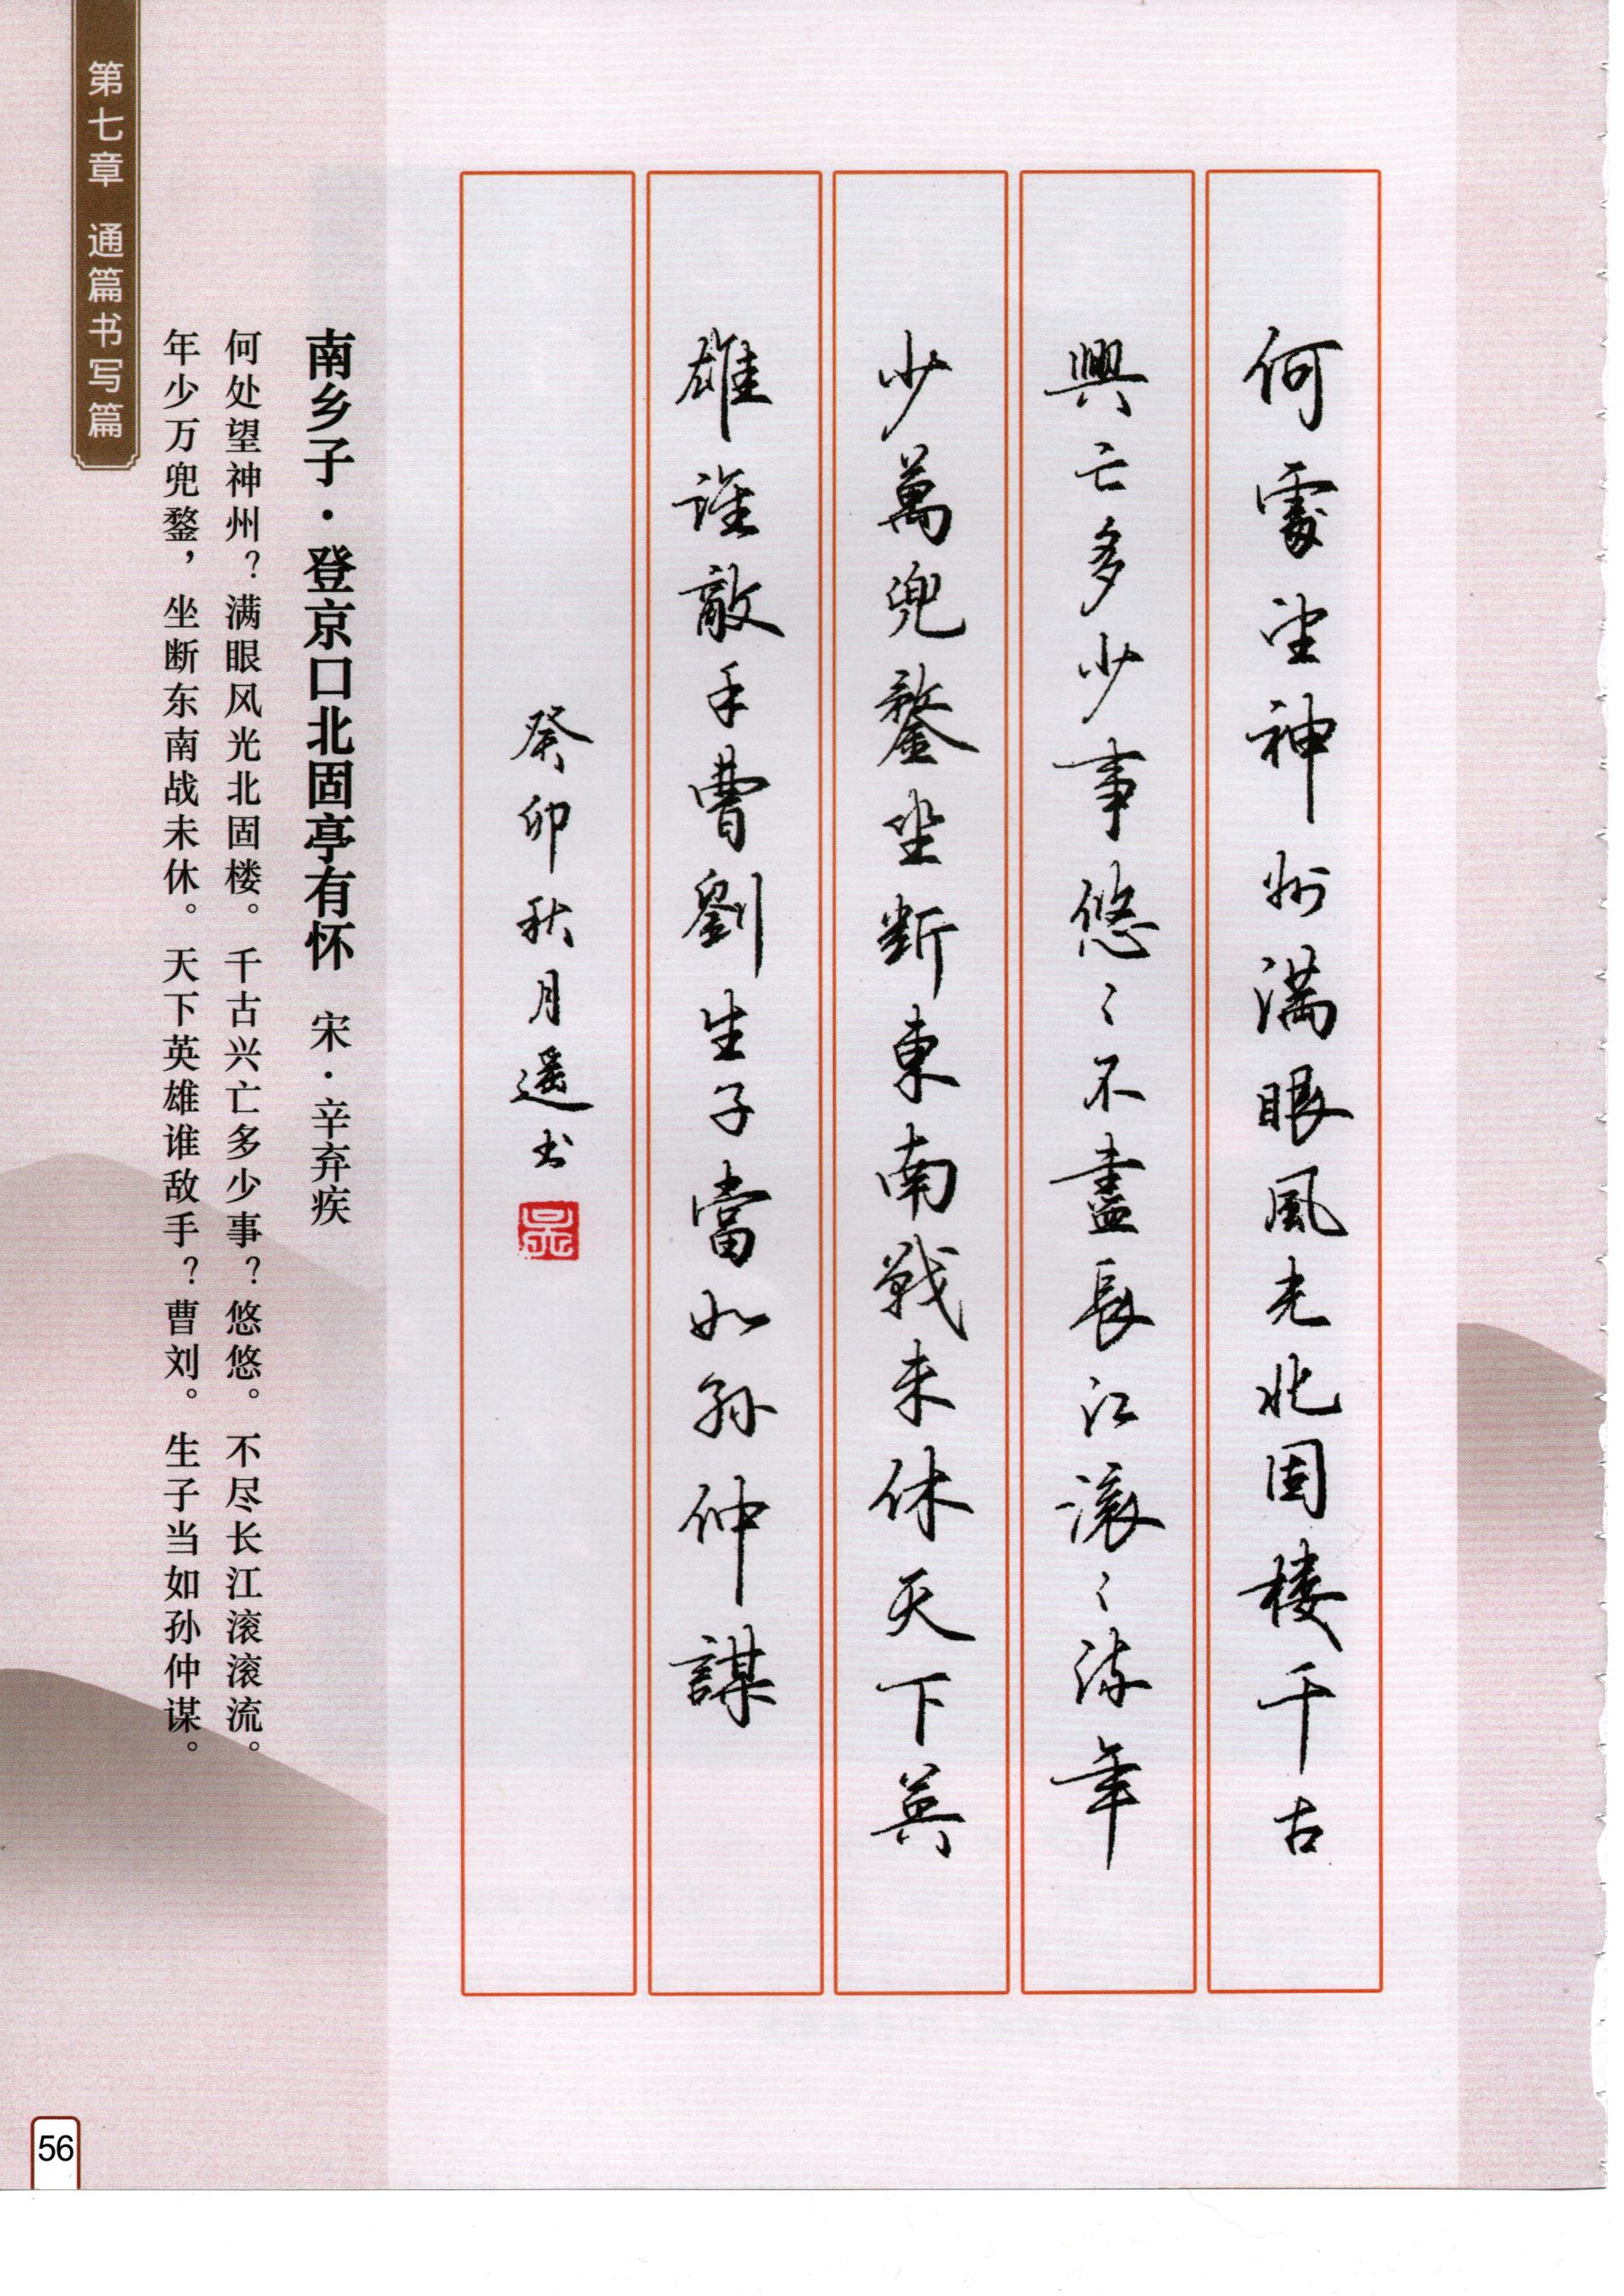 何處望神州满眼風光北固楼千古
興亡多少事悠〻不盡長江滚〻流年
少萬兜鍪坐断東南戰未休天下英
雄誰敵手曹劉生子當如孙仲謀
癸卯秋月遥书
南乡子·登京口北固亭有怀 宋·辛弃疾
何处望神州？满眼风光北固楼。千古兴亡多少事？悠悠。不尽长江滚滚流。
年少万兜鍪，坐断东南战未休。天下英雄谁敌手？曹刘。生子当如孙仲谋。
第七章 通篇书写篇
56